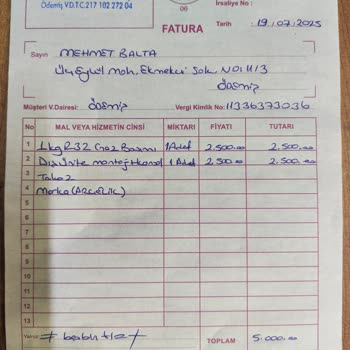 Ödemiş V.D.T.C. 217 102 272 04
İrsaliye No :
FATURA
Tarih : 19/07/2025
Sayın MEHMET BALTA
Üç Eylül Mah. Ekmekci Sok. NO: 11/3
ödemiş
Müşteri V.Dairesi: ödemiş Vergi Kimlik No: 11336373036
No MAL VEYA HİZMETİN CİNSİ MİKTARI FİYATI TUTARI
1 1kg R32 Gaz Basımı 1 Adet 2.500.00 2.500.00
2 Dış ünite montajı 1 Adet 2.500.00 2.500.00
3
4 Marka (ARÇELİK)
5
6
7
8
9
10
11
12
13
Yalnız # beşbin tl # TOPLAM 5.000.00